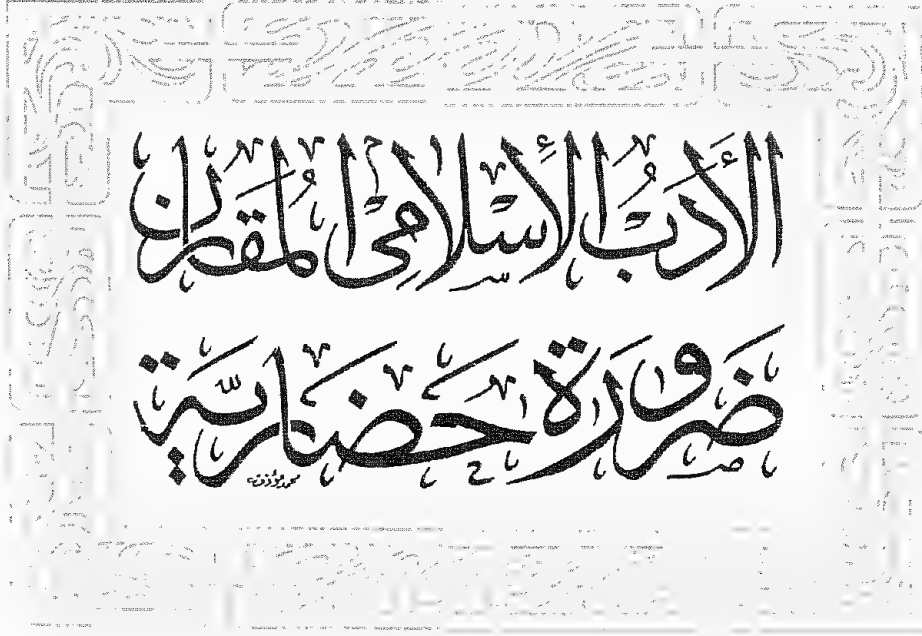 الأدب الإسلامي المقارن
ضرورة حضارية